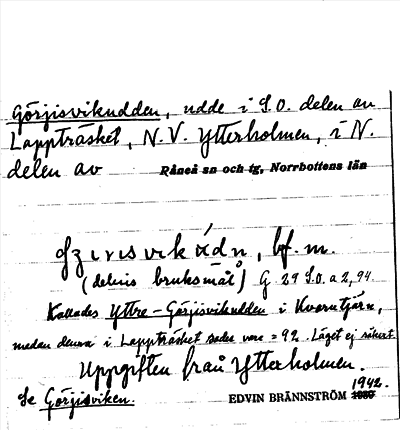 Görjisviksudden, udde i S.O. delen av
Lappträsket, N.V. Ytterholmen, i N.
delen av Råneå sn och tg, Norrbottens län
bf. m.
(delvis bruksmål) G 29 S.O. a 2, 94
Kallades Yttre-Görjisviksudden i Kvarntjärn,
medan denna i Lappträsket sades vara = 92. Läget ej säkert.
Uppgiften från Ytterholmen.
Se Görjisviken.
1942.
EDVIN BRÄNNSTRÖM